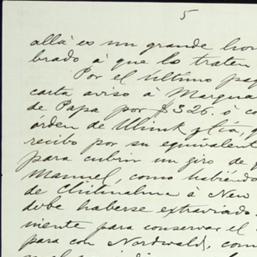 5
allá es un grande hom
brado á que lo traten
Por el último paq
carta aviso á Margua
de Papa por $326. ó c
órden de Ulink y Cía, q
recibo por su equivalent
para cubrir un giro de
Manuel, como habiéndo
de Chitinalma á New
debe haberse extraviado
miente para conservar el
para con Nordwald, com